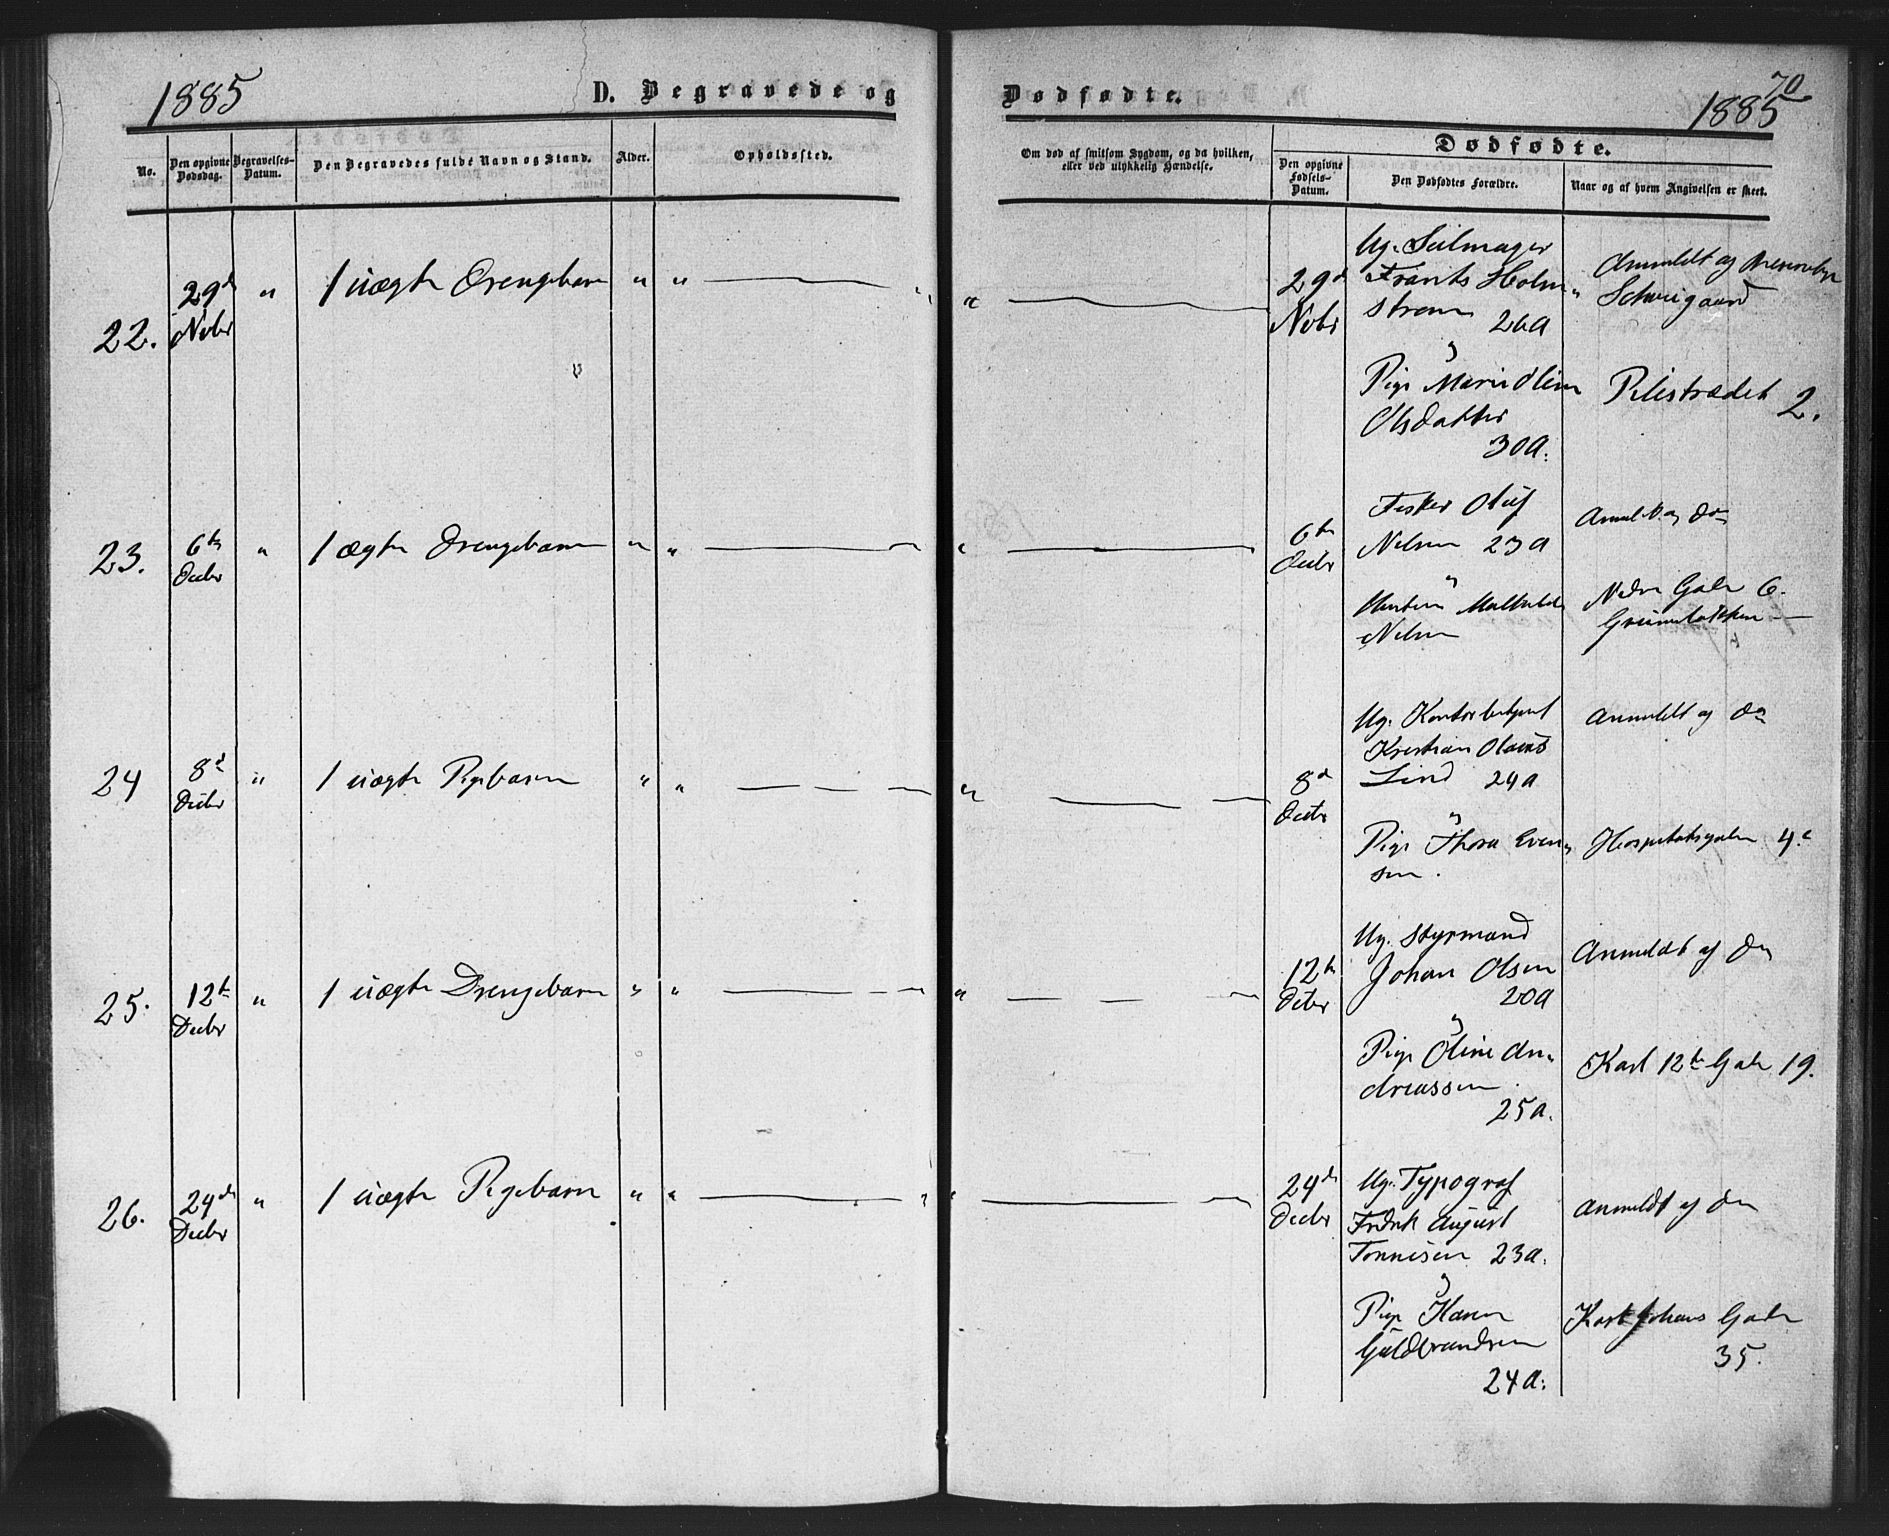 1885
D. Begravede og
Dødfødte.
70
1885
No.
Den opgivne Dødsdag.
Begravelses-Datum.
Den Begravedes fulde Navn og Stand.
Alder.
Opholdssted.
Om død af smitsom Sygdom, og da hvilken,
eller ved ulykkelig Hændelse.
Dødfødte.
Den opgivne Fødsels-Datum.
Den Dødfødtes Forældre.
Naar og af hvem Angivelsen er skeet.
22.
29d
Nvbr
" 1 uægte Drengebarn " "
"
29d
Nvbr
Ug. Seilmager
Frants Holm-
strøm 26A
Pige Marie Olsen
Olsdatter
30A.
Anmeldt af
Schweigaard
Pilestrædet 2.
23.
6te
Decbr
" 1 ægte Drengebarn " "
"
6te
Decbr
Fisker Oluf
Nilsen 23A
Hustru Mathilde
Nilsen
Anmeldt af Do
Nedre Gade 6.
Grünerløkken
24
8d
Decbr
" 1 uægte Pigebarn " "
"
8d
Decbr
Ug. Kontorbetjent
Kristian Olaus
Lind 24A
Pige Thora Even-
sen.
Anmeldt af Do
Hospitalsgaden 4c
25.
12te
Decbr
" 1 uægte Drengebarn " "
"
12te
Decbr
Ug. Styrmand
Johan Olsen
20A
Pige Oline An-
dreassen
25A.
Anmeldt af Do
Karl 12te Gade 19.
26.
24de
Decbr
" 1 uægte Pigebarn " "
"
24de
Decbr
Ug. Typograf
Fredrik August
Tønnisen 23A.
Pige Karen
Guldbrandsen
24A.
Anmeldt af Do
Karl Johans Gade
35.